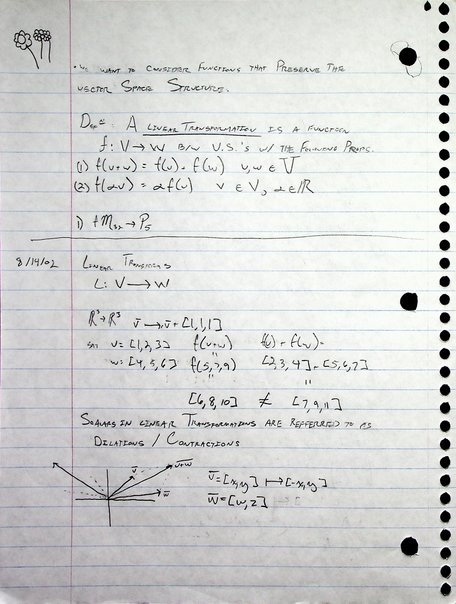 · WE WANT TO CONSIDER FUNCTIONS THAT PRESERVE THE
VECTOR SPACE STRUCTURE.
DEFⁿ: A LINEAR TRANSFORMATION IS A FUNCTION
f: V → W B/W V.S.'S W/ THE FOLLOWING PROPS.
(1) f(v+w) = f(v) + f(w) v, w ∈ V
(2) f(αv) = αf(v) v ∈ V, α ∈ ℝ
1) f M₃₂ → P₅
8/14/02 LINEAR TRANSFORMS
L: V → W
ℝ³ → ℝ³ v̄ → v̄ + [1,1,1]
SAY v = [1,2,3] f(v+w) f(v) + f(w) =
w = [4,5,6] f(5,7,9) [2,3,4] + [5,6,7]
[6,8,10] ≠ [7,9,11]
SCALARS IN LINEAR TRANSFORMATIONS ARE REFFERRED TO AS
DILATIONS / CONTRACTIONS
v̄ v+w w̄
v̄ = [x,y] ↦ [-x,y]
w̄ = [w,z]